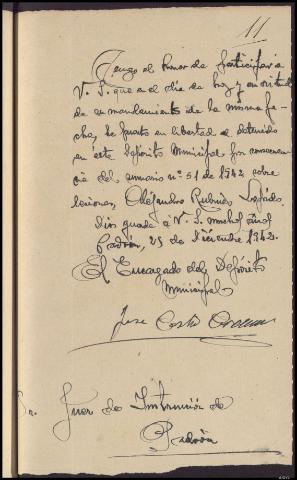 11
Tengo el honor de participar a
V. S. que en el dia de hoy y en virtud
de su mandamiento de la misma fe-
cha, he puesto en libertad al detenido
en éste Depósito Municipal por consecuen-
cia del sumario nº 51 de 1942 sobre
lesiones, Alejandro Rubinos
Dios guarde a V. S. muchos años
Padrón, 25 de Diciembre 1942.
El Encargado del Depósito
Municipal
Jose Castro
Sr. Juez de Instrucción de
Padrón